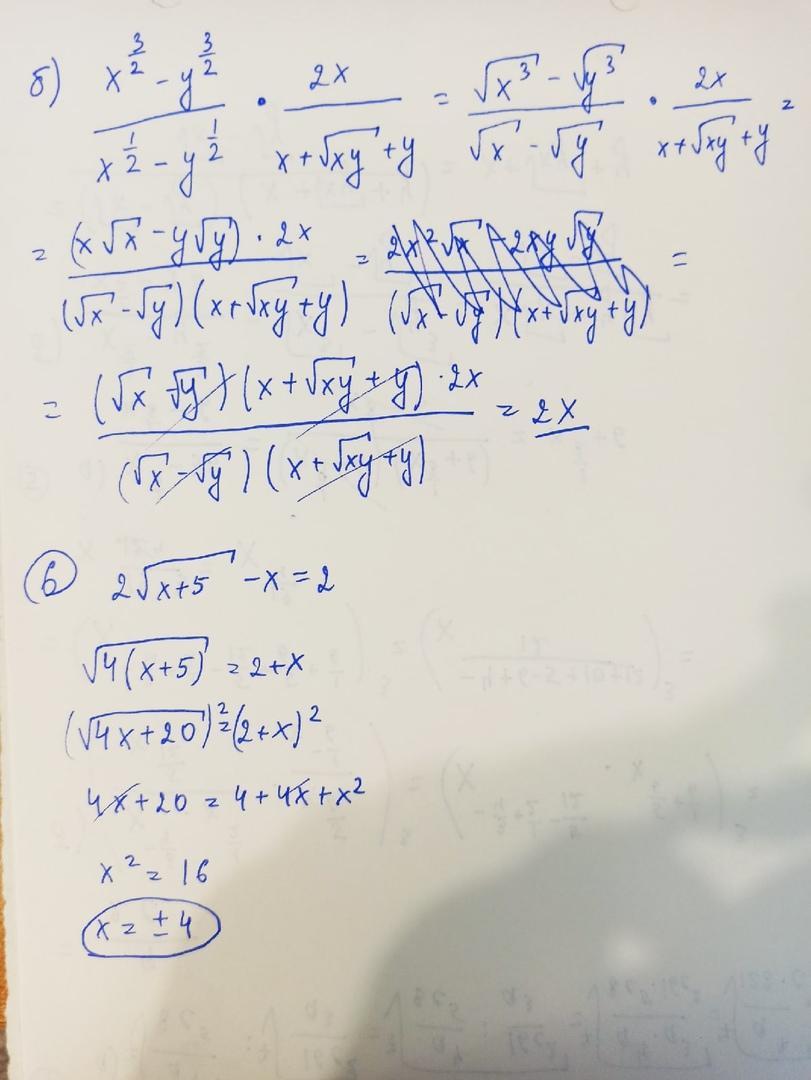 б) (x^(3/2) - y^(3/2))/(x^(1/2) - y^(1/2)) · 2x/(x+√xy+y) = (√x³ - √y³)/(√x - √y) · 2x/(x+√xy+y) =
= (x√x - y√y) · 2x/(√x - √y)(x+√xy+y) = (2x²√x - 2xy√y)/(√x - √y)(x+√xy+y) =
= (√x √y)(x+√xy+y) · 2x/(√x - √y)(x+√xy+y) = 2x
6 2√(x+5) - x = 2
√(4(x+5)) = 2+x
(√(4x+20))² = (2+x)²
4x+20 = 4+4x+x²
x² = 16
x = ±4